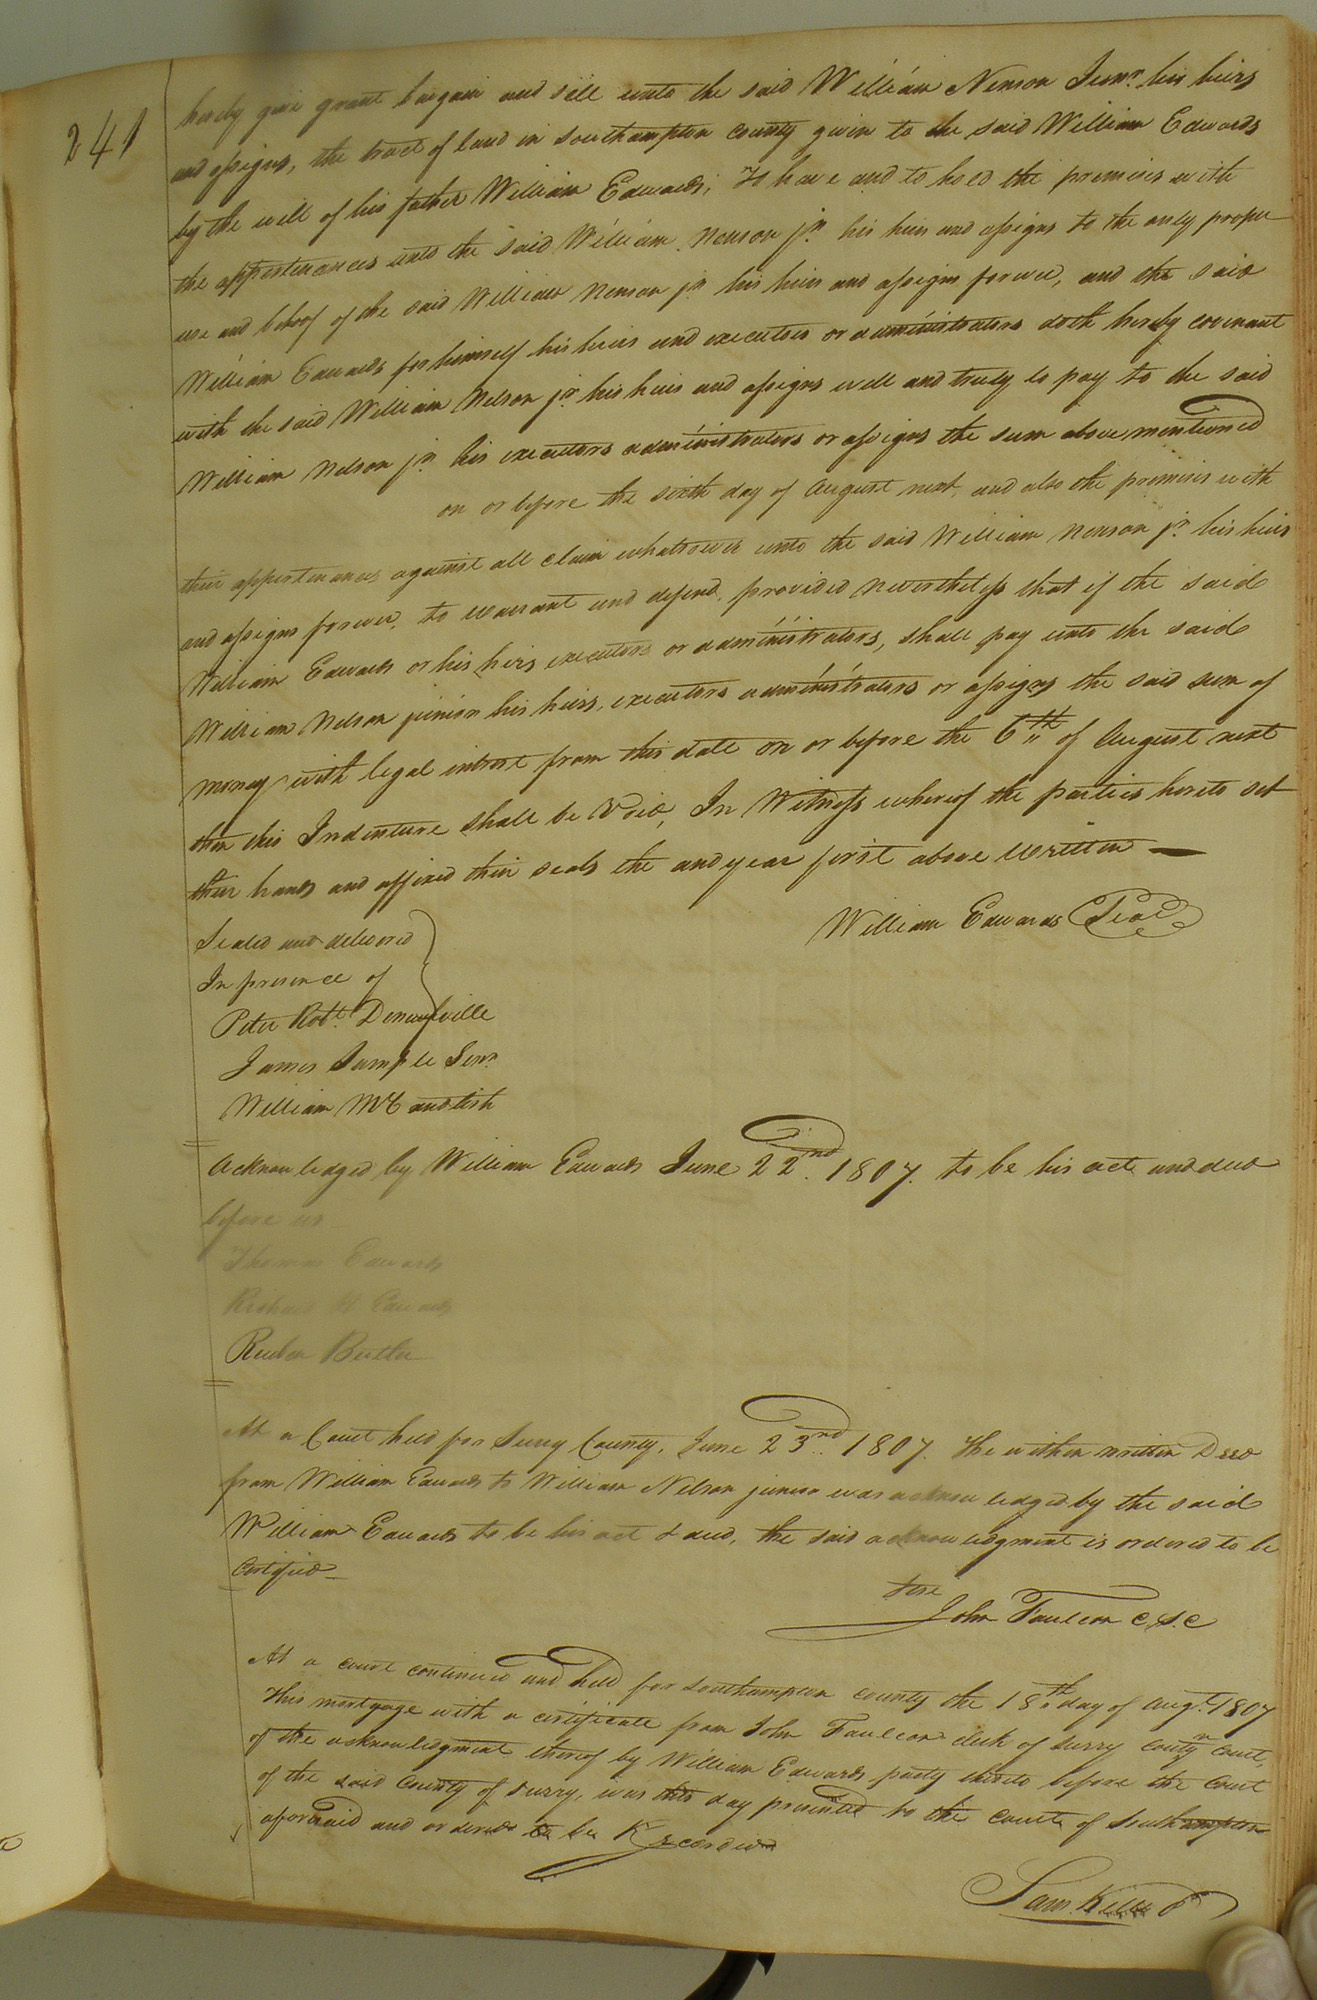 241
hereby give grant bargain and sell unto the said William Nenson Junr. his heirs
and assigns, the tract of land in Southampton county given to the said William Edwards
by the will of his father William Edwards; To have and to hold the premises with
the appertenances unto the said William Nenson jr. his heirs and assigns to the only proper
use and behoof of the said William Nenson jr his heirs and assigns forever, and the said
William Edwards for himself his heirs and executors or administrators doth hereby covenant
with the said William Nelson jr. his heirs and assigns well and truly to pay to the said
William Nelson jr. his executors administrators or assigns the sum above mentioned
on or before the sixth day of August next, and also the premises with
their appertenances against all claim whatsoever unto the said William Nenson jr. his heirs
and assigns forever, to warrant and defend, provided nevertheless that if the said
William Edwards or his heirs executors or administrators, shall pay unto the said
William Nelson junior his heirs, executors administrators or assigns the said sum of
money with legal intrest from this date on or before the 6th of August next
then this Indenture shall be Void, In Witness whereof the parties hereto set
their hands and affixed their seals the and year first above written
William Edwards Seal
Sealed and delivered
In presence of
Peter Robt. Deneufville
James Sample Senr.
William McCandlish
Acknowledged by William Edwards June 22nd. 1807. to be his act and deed
before us
Thomas Edwards
Richard H Edwards
Reuben Butler
At a Court held for Surry County, June 23nd. 1807. The within written Deed
from William Edwards to William Nelson junior was acknowledged by the said
William Edwards to be his act & deed, the said acknowledgment is ordered to be
Certified
Teste
John Faulcon C.S.C
At a court continued and held for Southampton county the 18th day of Augt. 1807
This mortgage with a certificate from John Faulcon clerk of Surry County Court,
of the acknowledgment thereof by William Edwards party thereto before the Court
of the said County of Surry, was this day presented to the court of Southampton
aforesaid and ordered to be Recorded
Sam. Kello